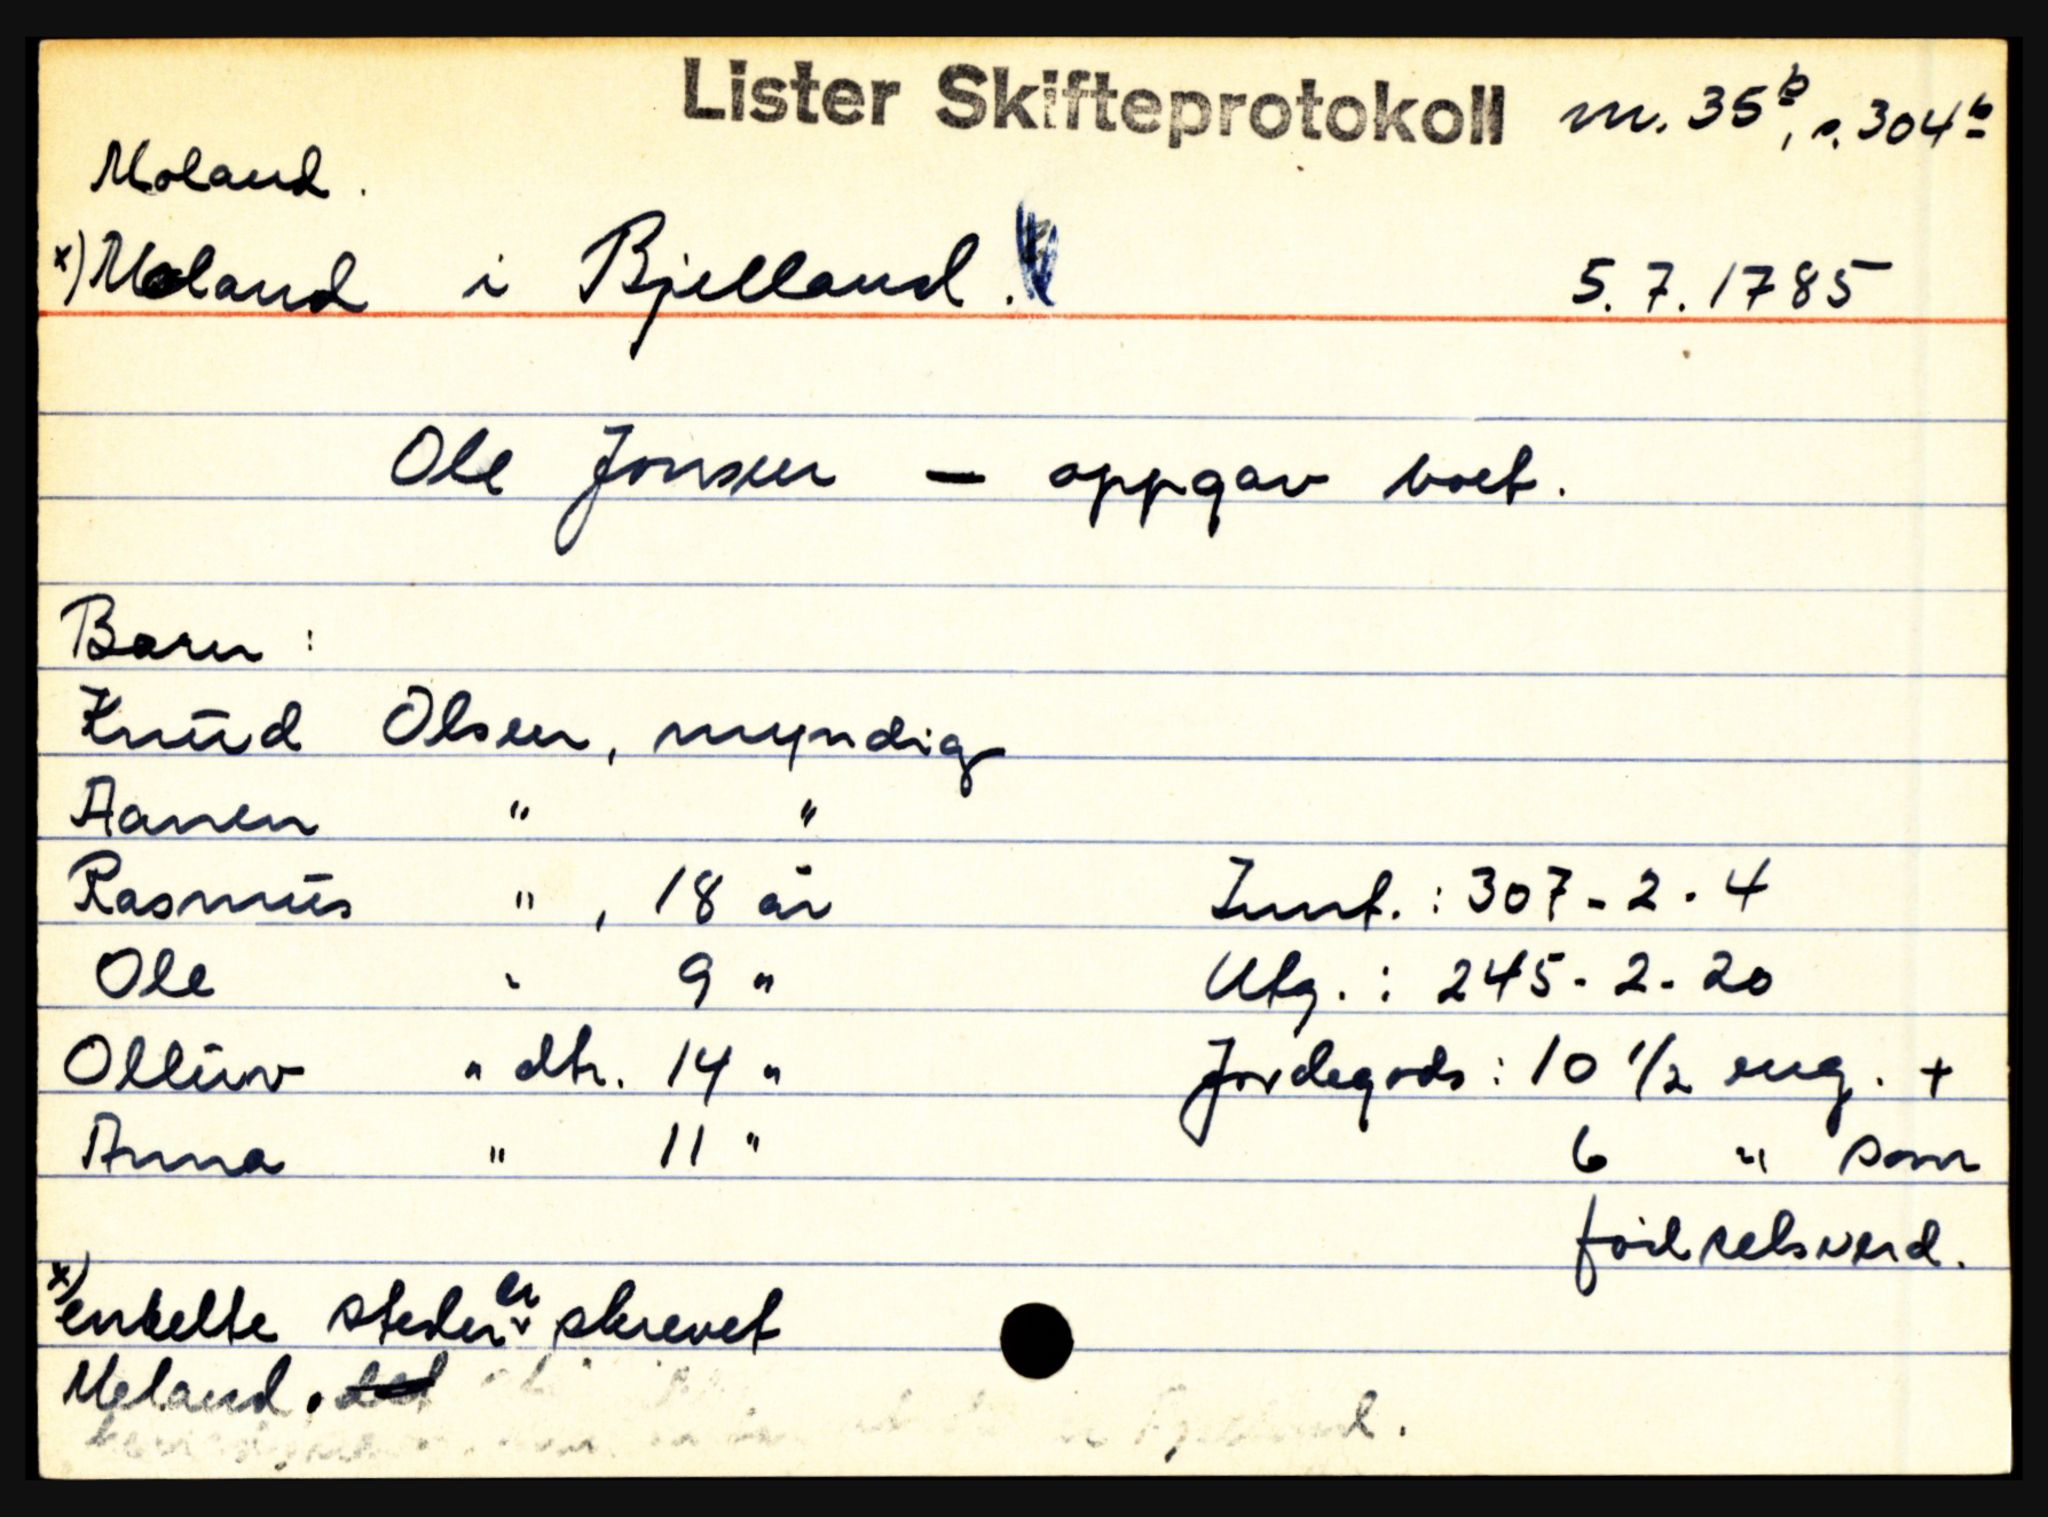 Lister Skifteprotokoll nr. 35b, s. 304b
Moland.
x) Moland i Bjelland. 5.7.1785
Ole Jonsen — oppgav boet.
Barn:
Knud Olsen, myndig
Aanen " "
Rasmus ", 18 år Innt.: 307-2-4
Ole " 9 " Utg.: 245-2-20
Olluv " dtr. 14 " Jordegods: 10 1/2 eng. +
Anna " 11 " 6 " som
förlselsverd.
x) enkelte steder er skrevet
Meland.